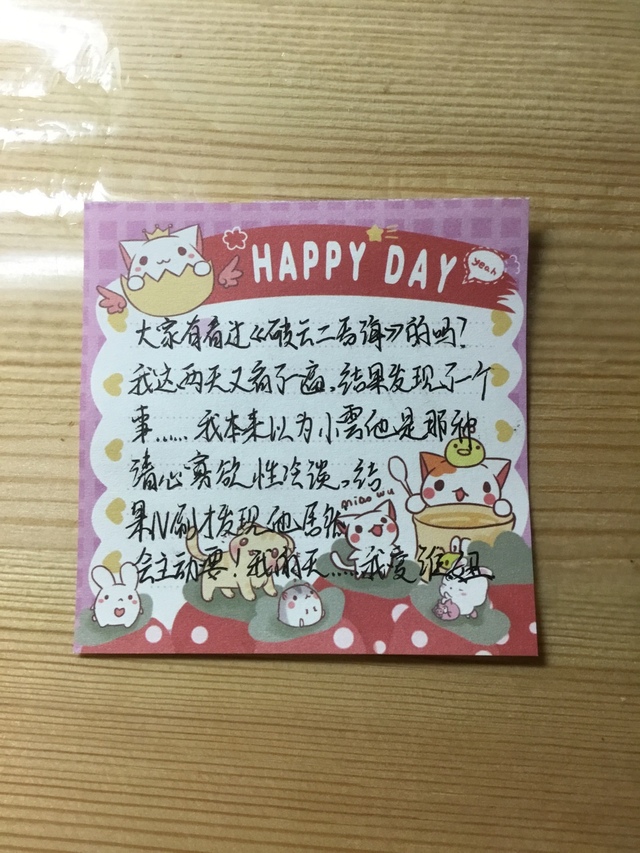 HAPPY DAY
yeah
大家有看过《破云二吞海》的吗?
我这两天又看了一遍,结果发现了一个
事......我本来以为小雩他是那种
清心寡欲性冷淡。结
miao wu
果N刷才发现他居然
会主动要!我的天....我爱淮